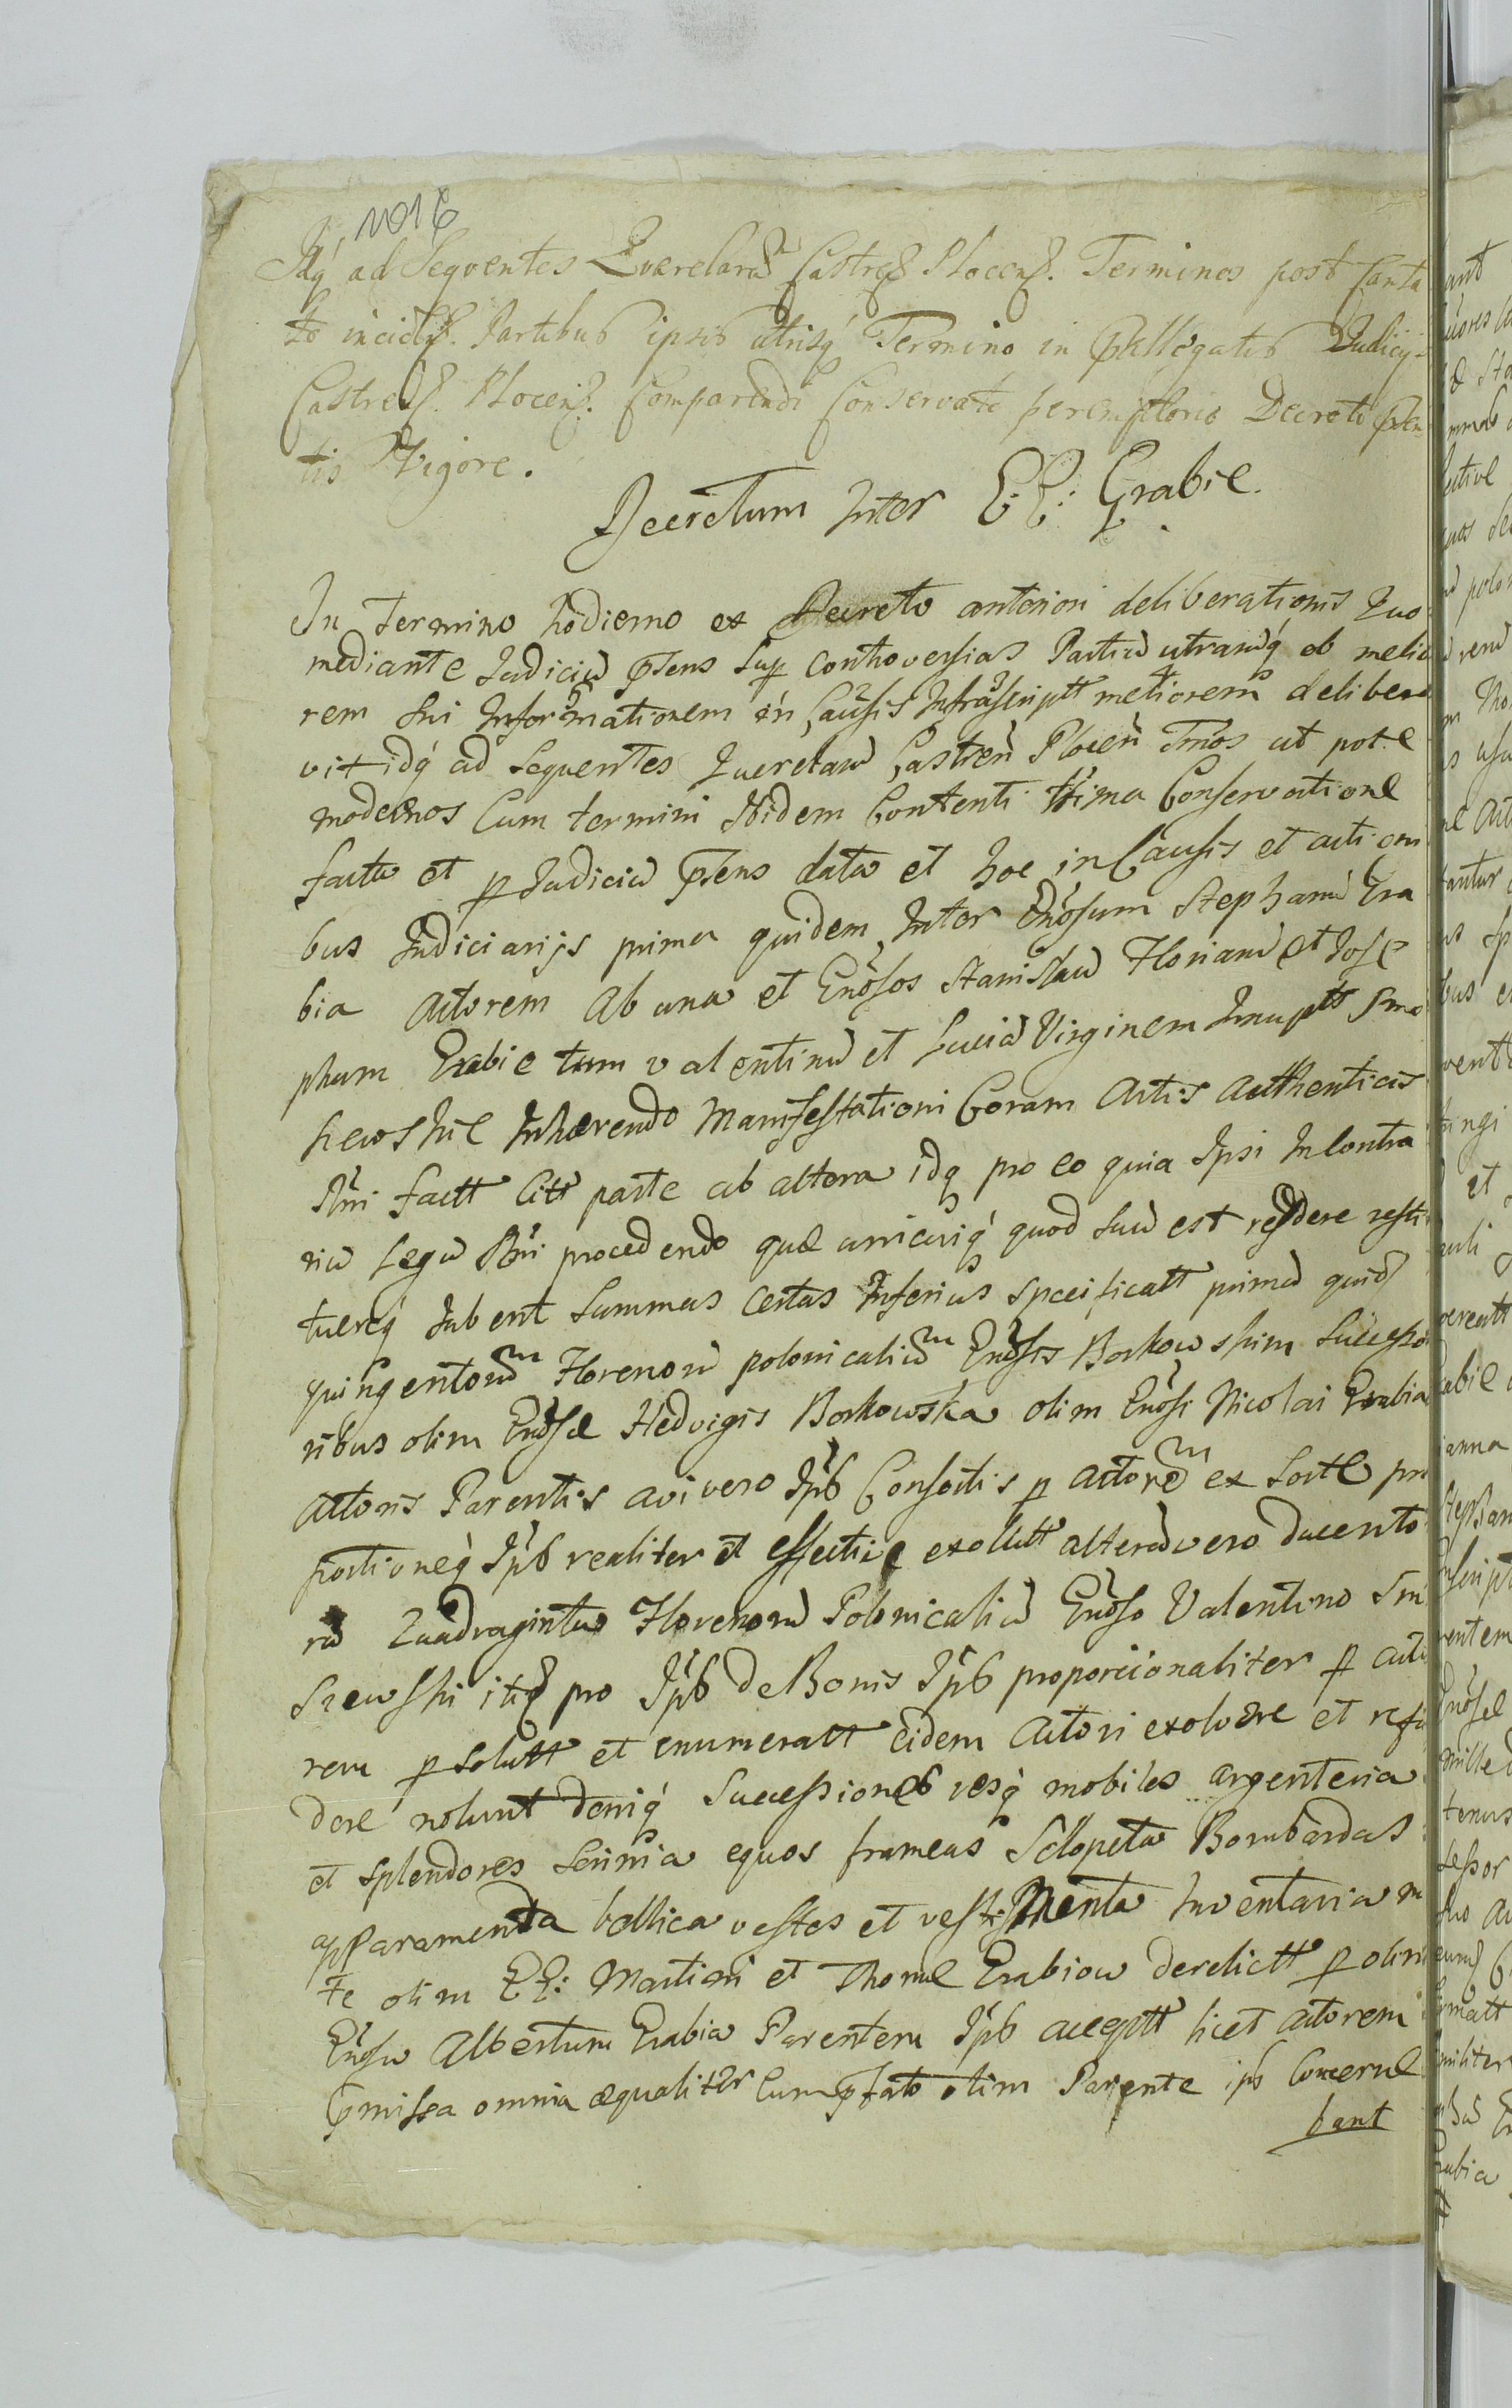 1016
Idq́ ad Seqventes Qværelarũ Castreñ Plocenẽ. Terminos post Canta
to incideñ. Partibus ipsis utrisq́ Termino in præallegatis Judicÿ
Castreñ. Plocenẽ. Comparendi Conservato peremptorio Decreti præsen
tis Vigore.
Decretum Inter G: G: Grabie.
In Termino hodierno ex Decreto anteriori deliberationis Quo
mediante Judiciũ præsens Sup Controversias Partiũ utrarũq́ ob melio
rem sui Informationem in Causis Infrascriptt meliorem delibera
vit idq́ ad Sequentes Querelarũ Castreñ Ploceñ Tmos ut pote
modernos Cum termini Ibidem Contenti Conservatione
facta et p Judiciũ præsens data et hoc in Causis et action
bus Judiciarijs prima quidem Inter Gñosum Stephanũ Gra
bia Actorem Ab una et Gñosos Stanislaũ Florianũ et Jose
phum Grabie tum valentinũ et Luciã Virginem Innuptt Smo
szewskie Inhærendo Manifestationi Coram Actis Authenticis
factt Citt parte ab altera idq pro eo quia Ipsi In Contra
riũ Legũ procedendo quæ unicuiq́ quod suũ est reddere resti
tuereq́ Jubent Summas Certas Inferius Specificatt primã quid
quingentorũ Florenorũ polonicaliũ Gñosis Borkowskim Successo
ribus olim Gñosæ Hedvigis Borkowska olim Gñosi Nicolai Grabia
Actoris Parentis avi vero Ipb Consortis p Actorẽ ex Sorte pro
portioneq́ Ipb realiter et effective exolutt alterã vero ducento
rũ Quadraginta Florenorũ Polonicaliũ Gñoso Valentino Smo
szewski itid pro Ipb de Bonis Ipb proporcionaliter p acto
rem p solutt et enumeratt eidem Actori exolvere et refun
dere nolunt deniq́ Successiones resq́ mobiles argenteria
et Splendores Scrinia equos frameas Sclopeta Bombardas
apparamenta bellica vestes et vestimenta Inventaria
te olim GG: Martini et Thomæ Grabiow derelictt p olim
Gñosũ Albertum Grabia Parentem Ipb acceptt licet Actorem
præmissa omnia æqualiter Cum præfato olim Parente ipb Concerne
bant